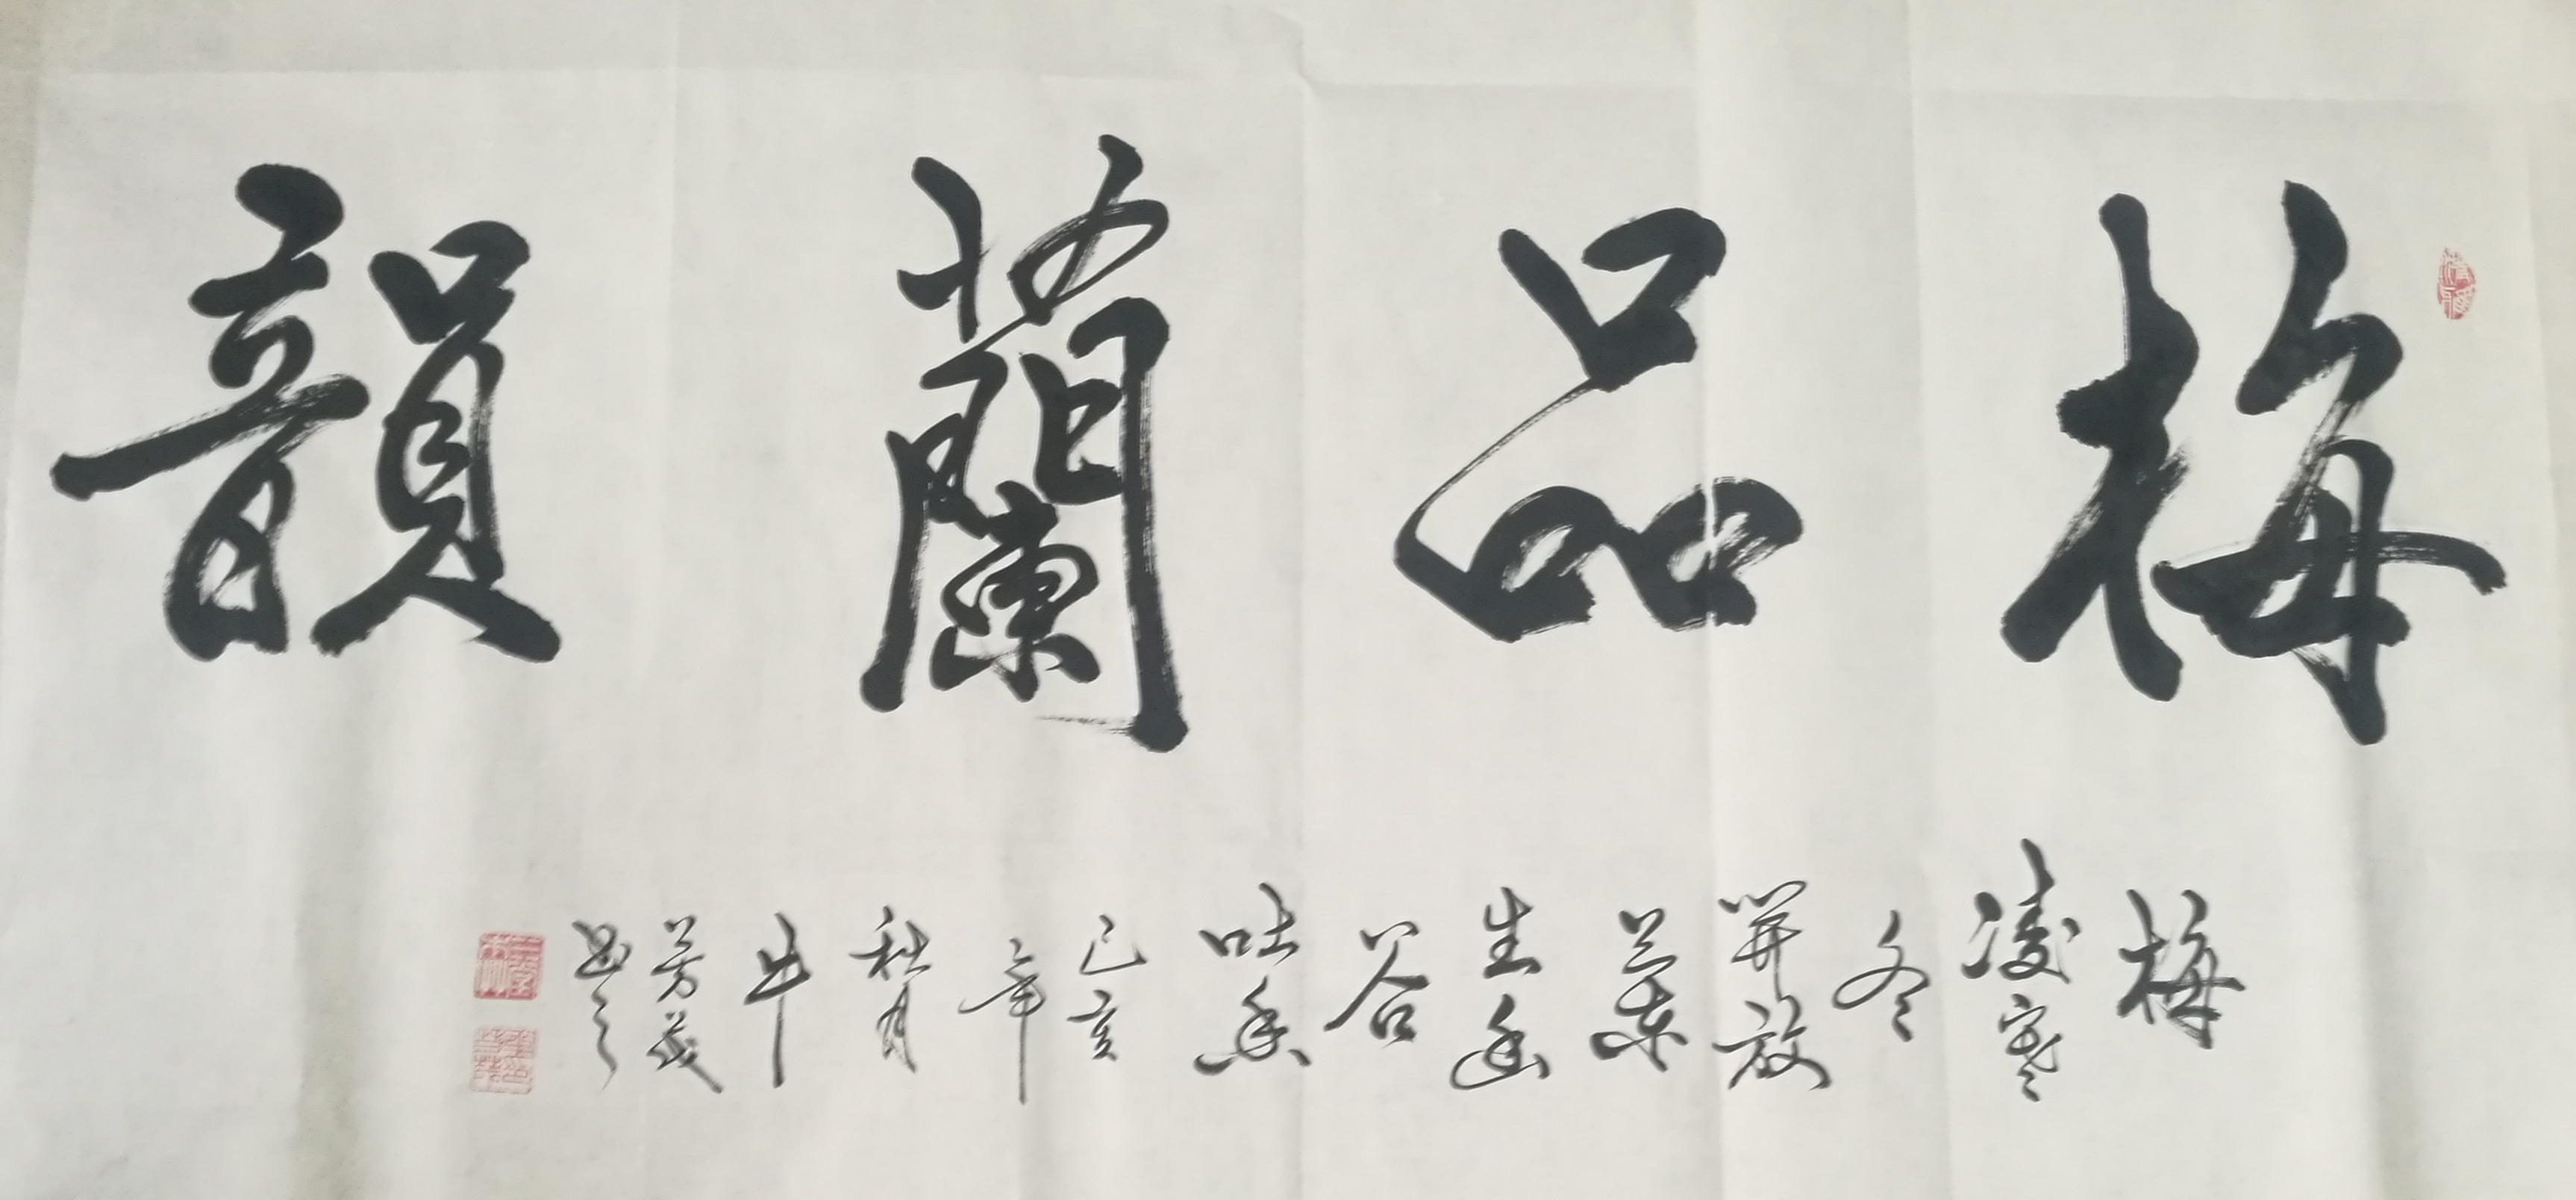 梅品蘭韻
梅
凌寒
冬
開放
蘭
生幽
谷
吐香
己亥
年
秋月
牛
芳茂
書